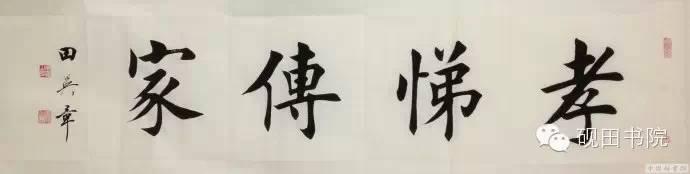 孝悌傳家
田英章
砚田书院